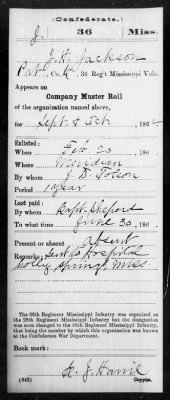 (Confederate.)
J. 36 Miss.
J. K. Jackson
Pvt, Co. G, 36 Reg't Mississippi Vols.
Appears on
Company Muster Roll
of the organization named above,
for Sept & Oct, 186
Enlisted:
When Feb 20, 186
Where Meridian
By whom
Period 1 year
Last paid:
By whom Capt.
To what time June 30, 186
Present or absent Absent
Remarks: Sent to Hospital
Holly Springs Miss
The 36th Regiment Mississippi Infantry was organized as
the 28th Regiment Mississippi Infantry but the designation
was soon changed to the 36th Regiment Mississippi Infantry,
that being the number by which this organization was known
at the Confederate War Department.
Book mark:
(642) Copyist.